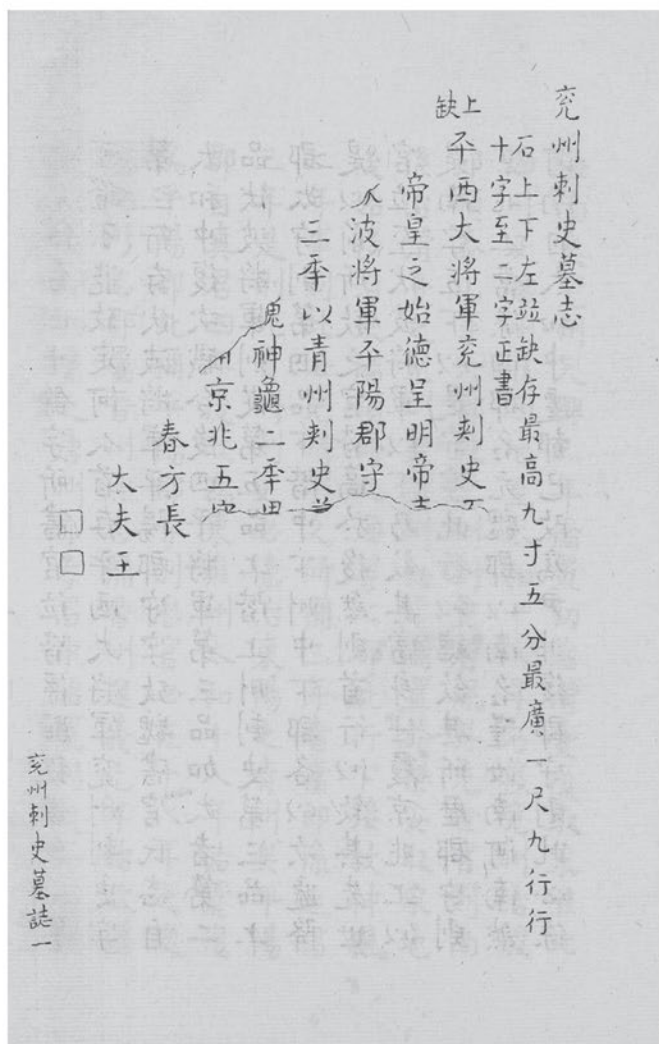 兖州刺史墓志
石上下左竝缺存最高九寸五分最廣一尺九行行
十字至二字正書
上缺
平西大將軍兖州刺史
帝皇之始德呈明帝
波將軍平陽郡守
三秊以青州刺史
神龜二秊
京兆五
春方長
大夫王
□□
兖州刺史墓誌一